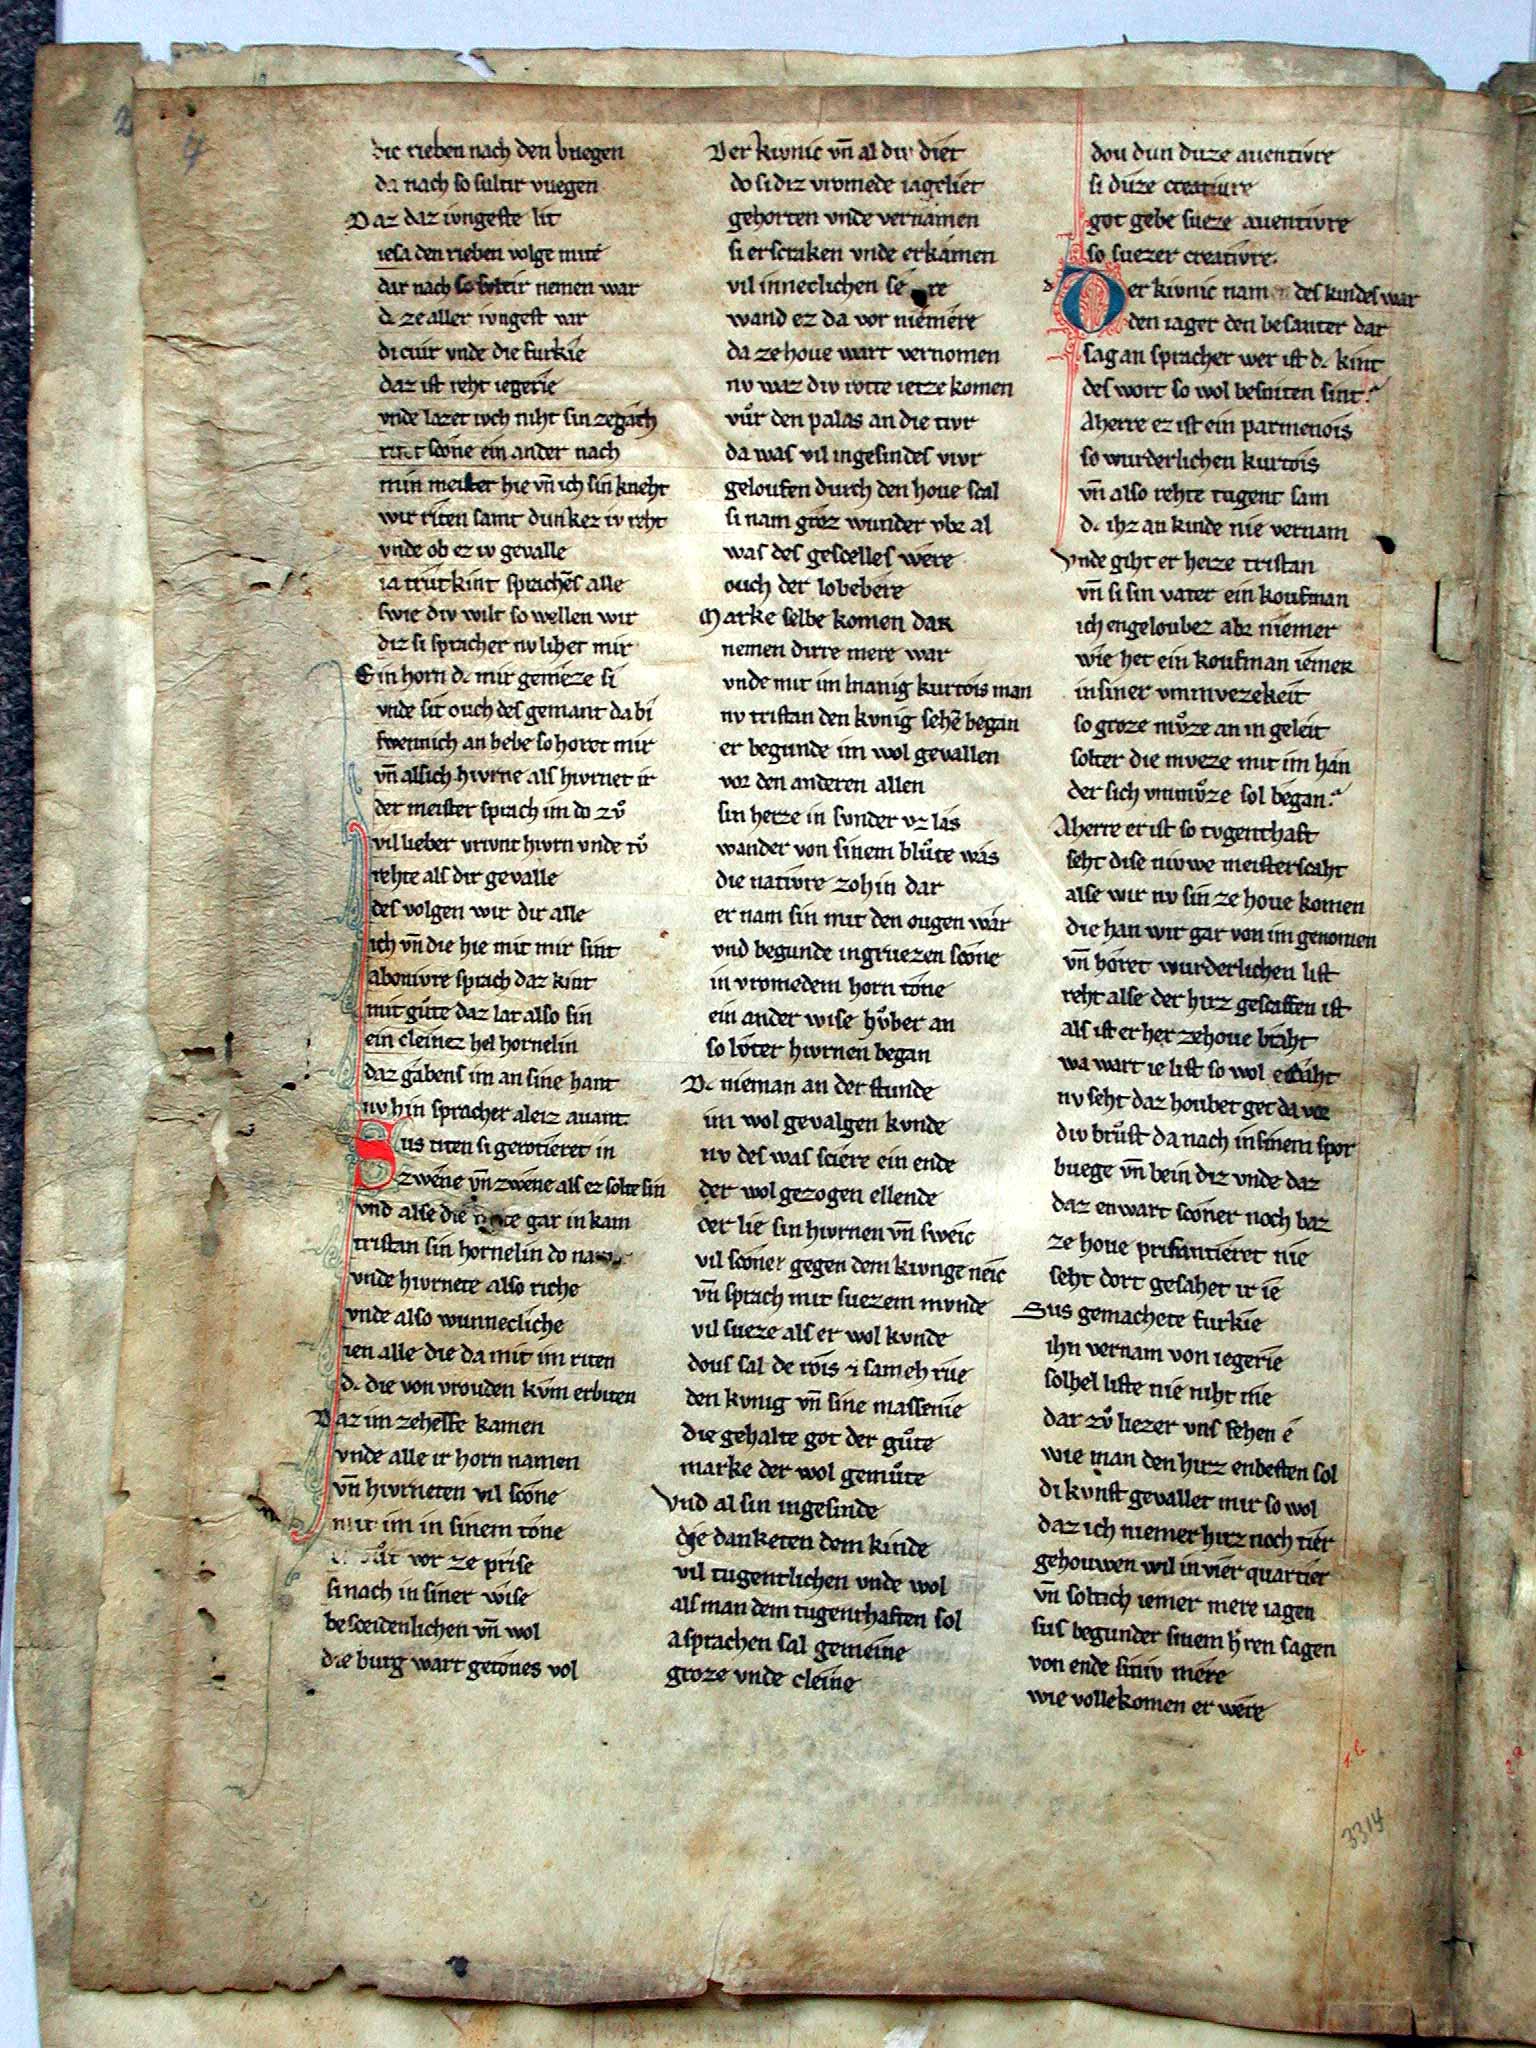 die rieben nach den buegen
da nach so sultir vuegen
Daz daz ivngeste lit
iesa den rieben volge mite
dar nach so soltir nemen war
dc ze aller ivngest var
di cuir vnde die furkie
daz ist reht iegerie
vnde lazet ivch niht sin ze gach
ritet scone ein ander nach
min meister hie vn̄ ich sin kneht
wir riten samt dunkez iv reht
vnde ob ez iv gevalle
ia trut kint sprachēs alle
swie div wilt so wellen wir
diz si spracher nv lihet mir
Ein horn dc mir gemeze si
vnde sit ouch des gemant da bi
swennich an hebe so horet mir
vn̄ alsich hivrne als hivrnet ir
der meister sprach im do zvͦ
vil lieber vrivnt hivrn vnde tvͦ
rehte als dir gevalle
des volgen wir dir alle
ich vn̄ die hie mit mir sint
abonivre sprach daz kint
mit gute daz lat also sin
ein cleinez hel hornelin
daz gabens im an sine hant
nv hin spracher aleiz avant.
Sus riten si gerotieret in
zwene vn̄ zwene als ez solte sin
vnd alse die rote gar in kam
tristan sin hornelin do nam
vnde hivrnete also riche
vnde also wunnecliche
ien alle die da mit im riten
dc die von vrouden kvm erbiten
Daz im ze helfe kamen
vnde alle ir horn namen
vn̄ hivrneten vil scone
mit im in sinem tone
vor ze prise
si nach in siner wise
besceidenlichen vn̄ wol
die burg wart getones vol
Der kivnic vn̄ al div diet
do si diz vromede iageliet
gehorten vnde vernamen
si erscraken vnde erkamen
vil inneclichen sere
wand ez da vor niemere
da ze houe wart vernomen
nv waz div rotte ietze komen
vuͦr den palas an die tivr
da was vil ingesindes vivr
geloufen durch den houe scal
si nam groz wunder vbe al
was des gescelles were
ouch der lobebere
Marke selbe komen dar
nemen dirre mere war
vnde mit im manig kurtois man
nv tristan den kvnig sehē began
er begunde im wol gevallen
vor den anderen allen
sin herze in sunder vz las
wander von sinem bluͦte was
die nativre zoh in dar
er nam sin mit den ougen war
vnd begunde in gruezen scone
in vromedem horn tone
ein ander wise hvͦber an
so luter hivrnen began
Dc nieman an der stunde
im wol gevolgen kvnde
nv des was sciere ein ende
der wol gezogen ellende
der lie sin hivrnen vn̄ sweic
vil scone gegen dem kivnge neic
vn̄ sprach mit suezem mvnde
vil sueze als er wol kvnde
dous sal de rois ⁊ sa meh nie
den kvnig vn̄ sine massenie
die gehalte got der guͦte
marke der wol gemuͦte
Vnd al sin ingesinde
die danketen dem kinde
vil tugentlichen vnde wol
als man dem tugenthaften sol
a sprachen sal gemeine
groze vnde cleine
dou dun duze auentivre
si duze creature
got gebe sueze auentivre
so suezer creativre.
Der kivnic nam des kindes war
den iager den besanter dar
sag an spracher wer ist dc kint
des wort so wol besniten sint.
Aherre ez ist ein parmenois
so wnderlichen kurtois
vn̄ also rehte tugent sam
dc ihz an kinde nie vernam
Vnde giht er heize tristan
vn̄ si sin vater ein koufman
ich engeloubez abz niemer
wie het ein koufman iemer
in siner vnmvezekeit
so groze mvͦze an in geleit
solter die mveze mit im han
der sich vnmvͦze sol began.
Aherre er ist so tvgenthaft
seht dise nivwe meisterscaht
alse wir nv sin ze houe komen
die han wir gar von im genomen
vn̄ horet wunderlichen list
reht alse der hirz gescaffen ist
als ist er her ze houe braht
wa wart ie list so wol erdaht
nv seht daz houbet get da vor
div bruͦst da nach in sinem spor
buege vn̄ bein diz vnde daz
daz enwart sconer noch baz
ze houe prisantieret nie
seht dort gesahet ir ie
Sus gemachete furkie
ihn vernam von iegerie
solhel liste nie niht me
dar zvͦ liezer vns sehen e
wie man den hirz enbesten sol
di kvnst gevallet mir so wol
daz ich niemer hirz noch tier
gehouwen wil in vier quartier
vn̄ soltich iemer mere iagen
sus begunder sinem hˢren sagen
von ende siniv mere
wie vollekomen er were
1.b.
3314
4